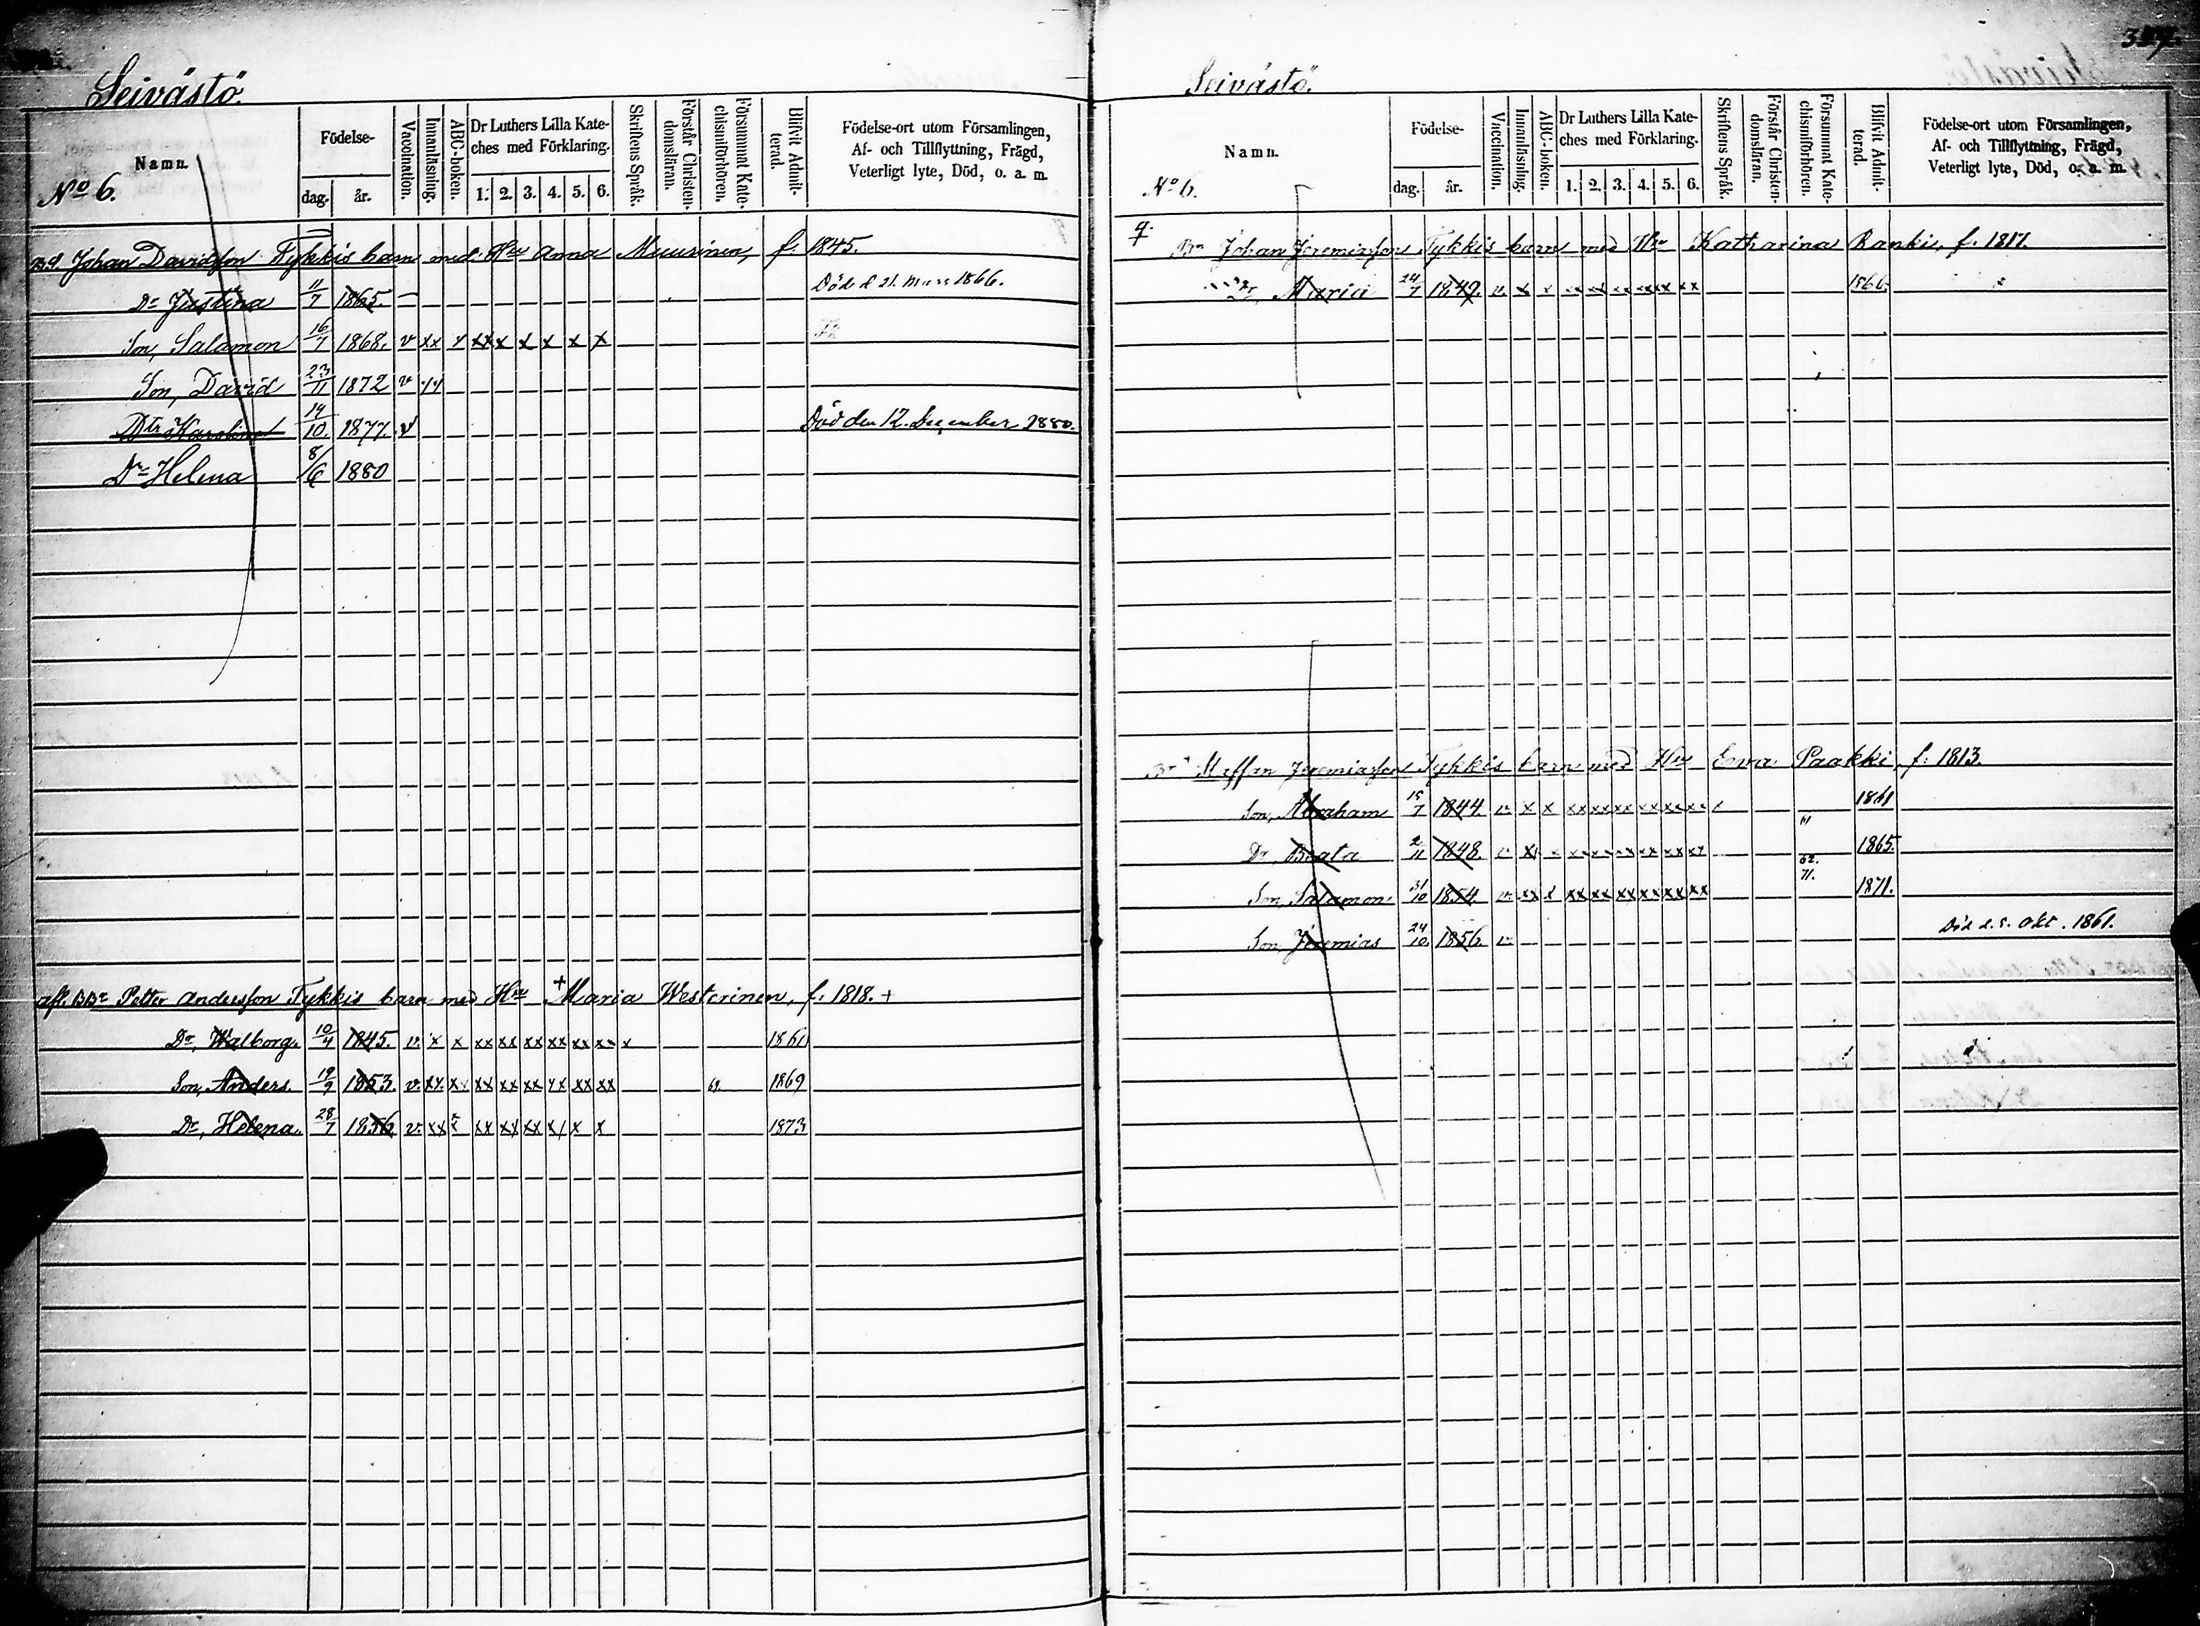 Seivästö.
No 6.
Namn.
Födelse-
dag. år.
Vaccination.
Innanläsning.
ABC-boken.
Dr Luthers Lilla Kate-
ches med Förklaring.
1. 2. 3. 4. 5. 6.
Skriftens Språk.
Förstår Christen-
domsläran.
Försummat Kate-
chismiförhören.
Blifvit Admit-
terad.
Födelse-ort utom Församlingen,
Af- och Tillflyttning, Frägd,
Veterligt lyte, Död, o. a. m.
Johan Davidsson Tykkis barn med Hu Anna Muurinen, f. 1845.
Dr Justina 11/7 1865. Död d. 21. Mars 1866.
Son, Salamon 16/7 1868. v xx x xx x x x x x
Son, David 23/11 1872 v
Dtr Karolina 19/10. 1877. v Död den 12. December 1880.
Dr Helena 8/6 1880
afl. Br Petter Andersson Tykkis barn med Hu + Maria Westerinen, f. 1818. +
Dr, Walborg. 10/4 1845. v. x x xx xx xx xx xx xx x 1861
Son, Anders. 19/9 1853. v. xx xx xx xx xx xx xx 69. 1869
Dr, Helena. 28/7 1856 v. xx xx xx xx x x 1873
Seivästö.
No 6.
Namn.
Födelse-
dag. år.
Vaccination.
Innanläsning.
ABC-boken.
Dr Luthers Lilla Kate-
ches med Förklaring.
1. 2. 3. 4. 5. 6.
Skriftens Språk.
Förstår Christen-
domsläran.
Försummat Kate-
chismiförhören.
Blifvit Admit-
terad.
Födelse-ort utom Församlingen,
Af- och Tillflyttning, Frägd,
Veterligt lyte, Död, o. a. m.
Br Johan Jeremiasson Tykkis barn med Hu Katharina Ranki, f. 1817.
Dr, Maria 24/7 1849. v. x x xx xx xx xx xx xx 1866.
Br Staffan Jeremiasson Tykkis barn med Hu Eva Paakki, f. 1813.
Son, Abraham 15/7 1844. v. x x xx xx xx xx xx xx 61 1861
Dr, Beata 2/11 1848. v. x xx xx xx xx xx xx 62. 1865.
Son, Salamon 31/10 1854. v. xx x xx xx xx xx xx xx 71. 1871.
Son, Jeremias 24/10. 1856. v. Död d. 5. Okt. 1861.